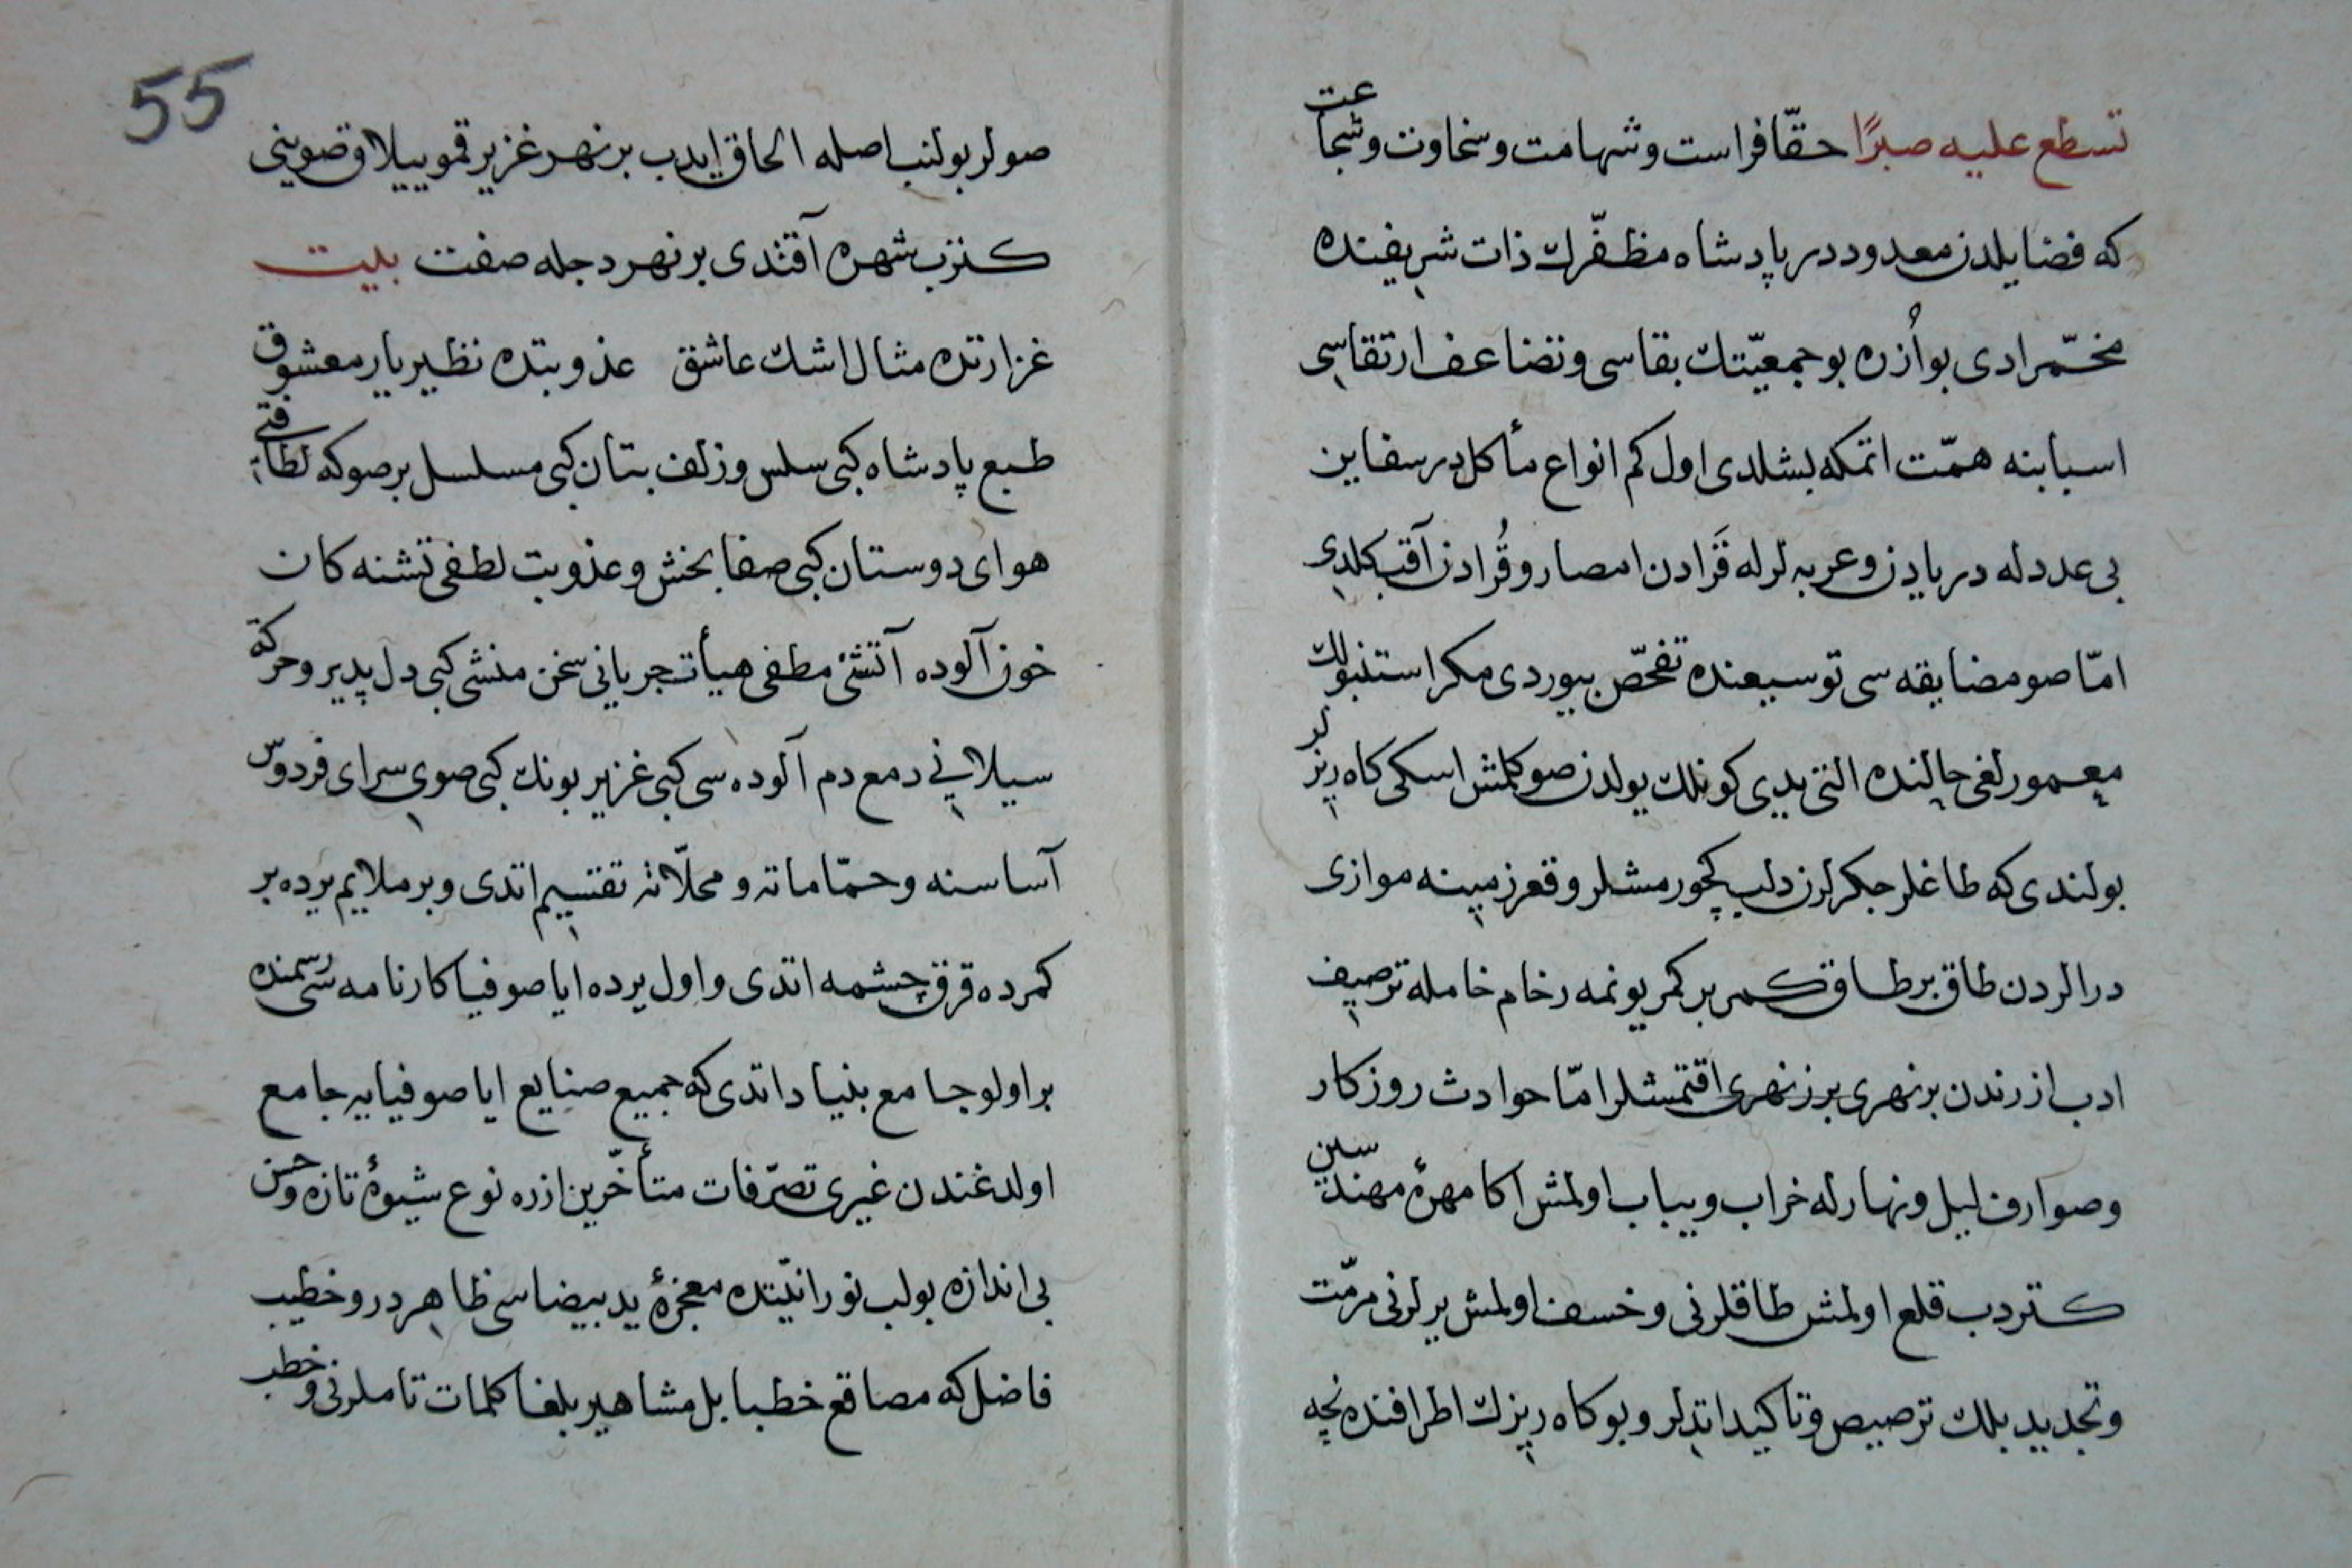 تسطع عليه صبرًا حقّا فراست وشهامت وسخاوت وشجاعت
كه فضايلدن معدوددر پادشاه مظفّرك ذات شريفنده
مخمّر ادى بو اُزره بو جمعيّتك بقاسى وتضاعف ارتقاسى
اسبابنه همّت اتمكه بشلدى اول كم انواع مأكل در سفاين
بى عددله دريادن وعربه لرله قَرادن امصار وقُرادن آقب كلدى
امّا صو مضايقه سى توسيعنده تفحّص بيوردى مكر استنبولك
معمورلغى حالنده التى يدى كونلك يولدن صو كلمش اسكى كاه ريزلر
بولندى كه طاغلر جكرلرن دلب كچورمشلر وقعر زمينه موازى
درالردن طاق بر طاق كمر بر كمر يونمه رخام خامله ترصيف
ادب ازرندن بر نهرى برز نهرى اقتمشلر امّا حوادث روزكار
وصوارف ليل ونهارله خراب ويباب اولمش اكا مهرۀ مهندسين
كتردب قلع اولمش طاقلرنى وخسف اولمش يرلرنى مرمّت
وتجديد بلك ترصيص وتاكيد اتدلر وبو كاه ريزك اطرافنده نچه
55
صولر بولنب اصله الحاق ايدب بر نهر غزير قمو ييلاق صوينى
كترب شهره آقتدى بر نهر دجله صفت بيت
غزارتده مثال اشك عاشق عذوبتده نظير يار معشوق
طبع پادشاه كبى سلس وزلف بتان كبى مسلسل بر صو كه لطافتى
هواى دوستان كبى صفا بخش وعذوبت لطفى تشنه كان
خون آلوده آتشئ مطفى هيأت جريانى سخن منشى كبى دل پدير وحركة
سيلانى دمع دم آلوده سى كبى غزير بونك كبى صوى سراى فردوس
آساسنه وحمّاماته ومحلّاته تقسيم اتدى وبر ملايم يرده بر
كمرده قرق چشمه اتدى واول يرده اياصوفيا كارنامه سى رسمنده
بر اولو جامع بنياد اتدى كه جميع صنايع اياصوفيايه جامع
اولدغندن غيرى تصرّفات متأخّرين ازره نوع شيوۀ تازه وحسن
بى اندازه بولب نورانيّتده معجزۀ يد بيضاسى ظاهردر وخطيب
فاضل كه مصاقع خطبا بل مشاهير بلغا كلمات تاملرنى وخطب